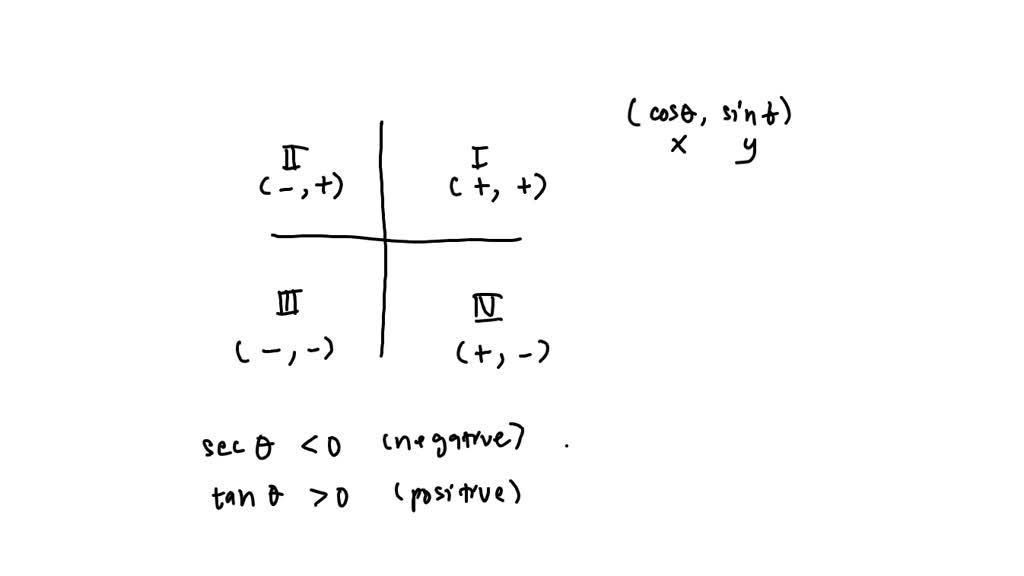 (cosθ, sinθ)
x y
II I
(-,+) (+, +)
III IV
(-,-) (+, -)
sec θ < 0 (negative) .
tan θ > 0 (positive)